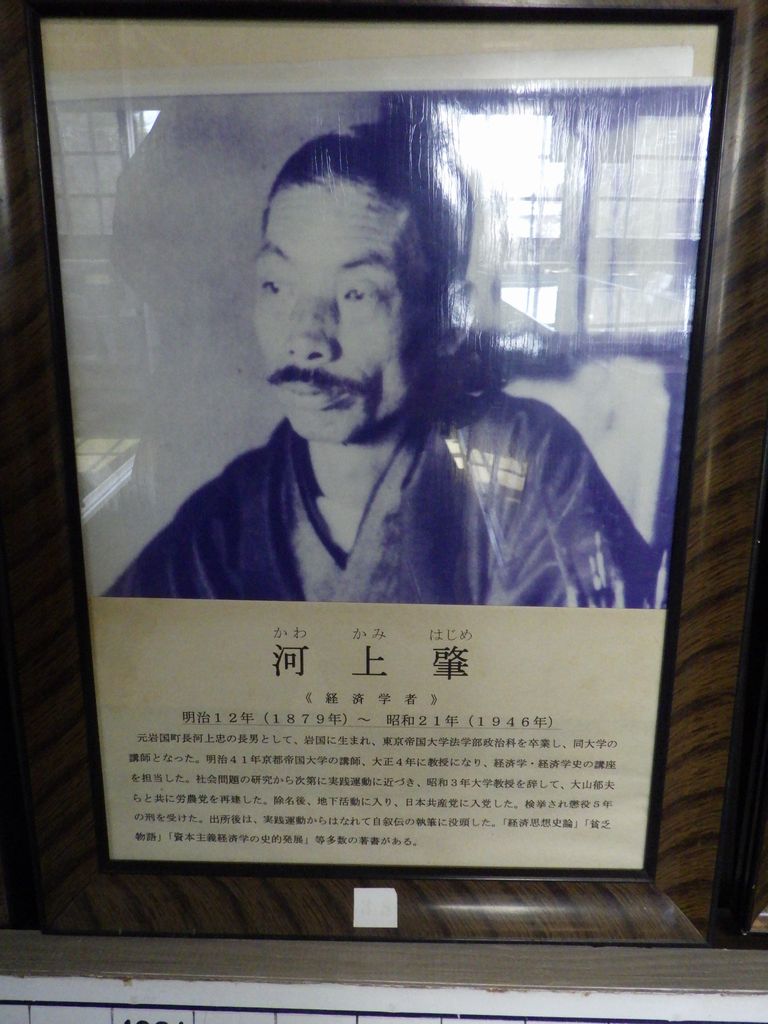 かわ かみ はじめ
河上肇
《経済学者》
明治12年（1879年）～ 昭和21年（1946年）
元岩国町長河上忠の長男として、岩国に生まれ、東京帝国大学法学部政治科を卒業し、同大学の
講師となった。明治41年京都帝国大学の講師、大正4年に教授になり、経済学・経済学史の講座
を担当した。社会問題の研究から次第に実践運動に近づき、昭和3年大学教授を辞して、大山郁夫
らと共に労農党を再建した。除名後、地下活動に入り、日本共産党に入党した。検挙され懲役5年
の刑を受けた。出所後は、実践運動からはなれて自叙伝の執筆に没頭した。「経済思想史論」「貧乏
物語」「資本主義経済学の史的発展」等多数の著書がある。